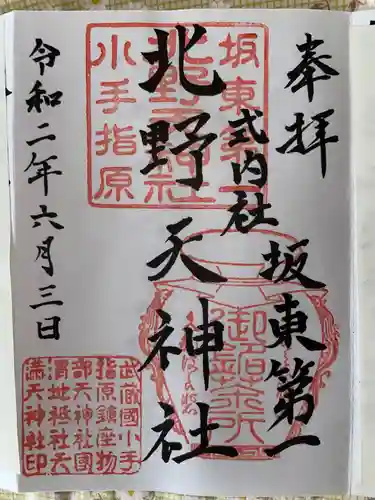 奉拝
坂東第一
式内社
北野天神社
令和二年六月三日
坂東第一
北野天神社
小手指原
御銘茶所
武蔵國小手
指原鎮座物
部天神社國
渭地祇社天
満天神社印